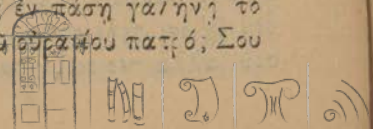 ἐν πάσῃ γαλήνῃ τὸ
οὐρανίου πατρός Σου